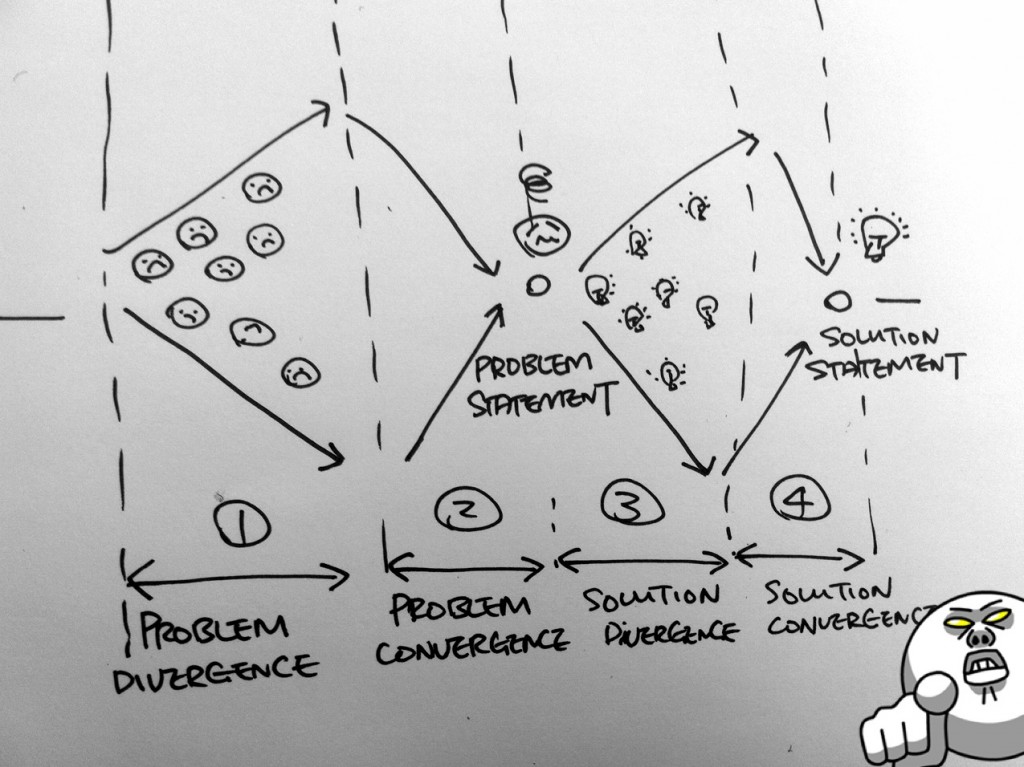 PROBLEM
STATEMENT
SOLUTION
STATEMENT
1
2
3
4
PROBLEM
DIVERGENCE
PROBLEM
CONVERGENCE
SOLUTION
DIVERGENCE
SOLUTION
CONVERGENC